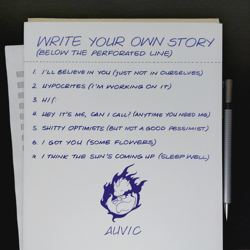 WRITE YOUR OWN STORY
(BELOW THE PERFORATED LINE)
1. I'LL BELIEVE IN YOU (JUST NOT IN OURSELVES)
2. HYPOCRITES (I'M WORKING ON IT)
3. HI (:
4. HEY IT'S ME, CAN I CALL? (ANYTIME YOU NEED ME)
5. SHITTY OPTIMISTS (BUT NOT A GOOD PESSIMIST)
6. I GOT YOU (SOME FLOWERS)
7. I THINK THE SUN'S COMING UP (SLEEP WELL)
AUVIC